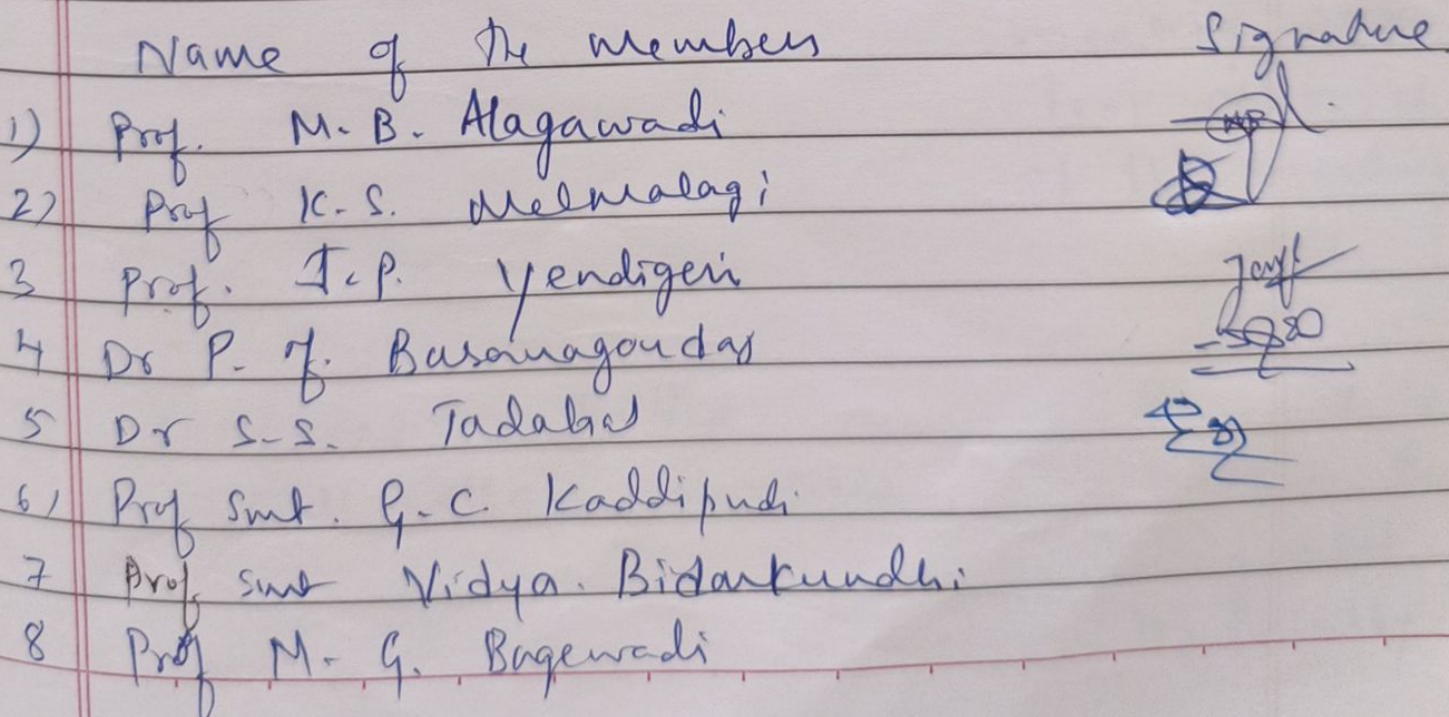 Name of the members Signature
1) Prof. M. B. Alagawadi
2) Prof K. S. Melmalagi
3 Prof. I. P. Yendigeri
4 Dr P. Y. Basanagoudar
5 Dr S. S. Tadahal
6) Prof Smt. G. C. Kaddipudi
7 Prof Smt Vidya. Bidarkundhi
8 Prof M. G. Bagewadi